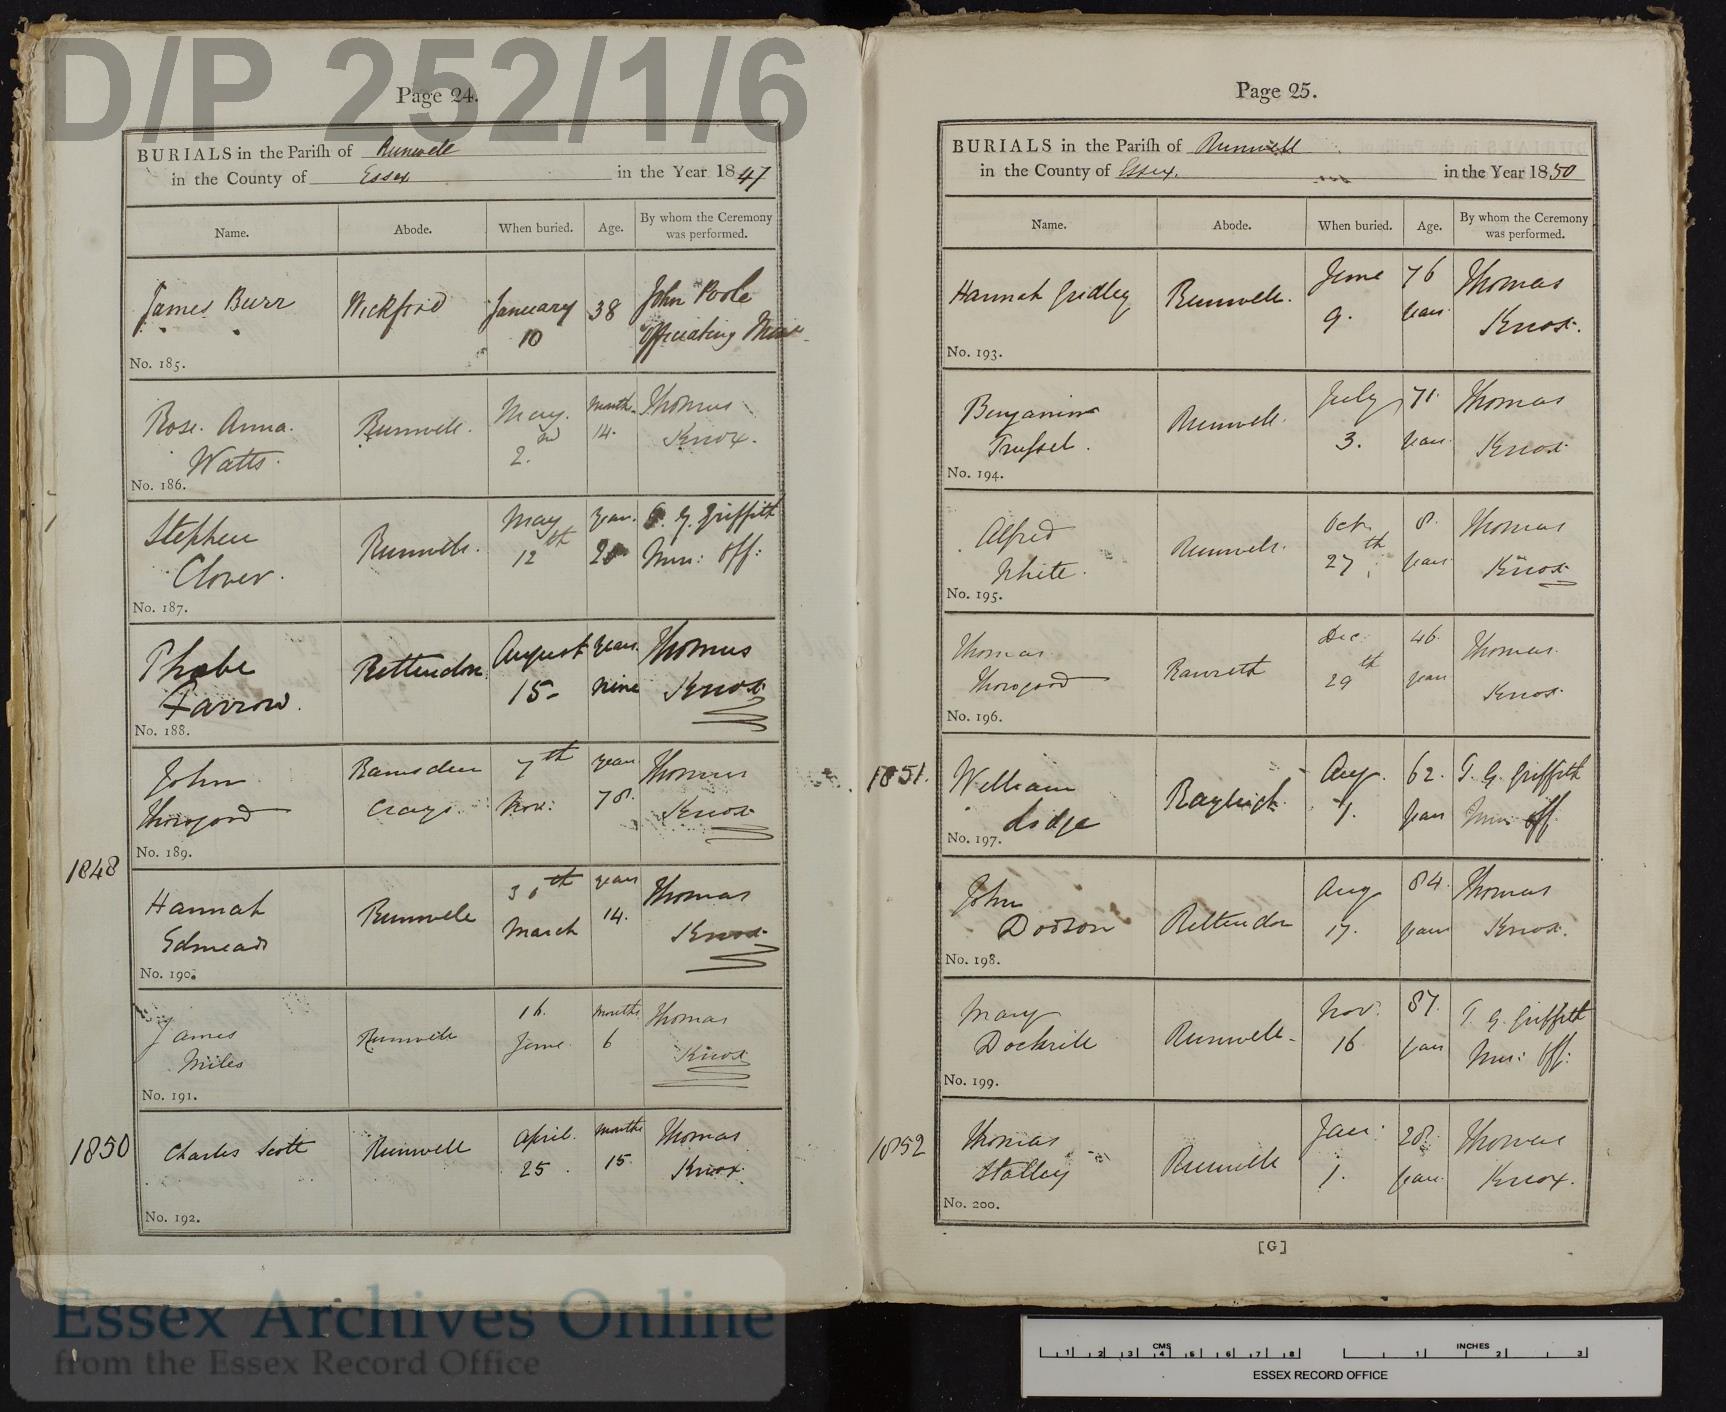 D/P 252/1/6
Page 24.
BURIALS in the Parish of Runwell
in the County of Essex in the Year 1847
Name. Abode. When buried. Age. By whom the Ceremony
was performed.
James Burr Wickford January 10 38 John Poole
Officiating
No. 185.
Rose Anna Runwell. May months Thomas
Watts. 2nd 14. Knox.
No. 186.
Stephen Runwell. May years. G. Griffith
Clover. 12th Min: Off:
No. 187.
Phœbe Rettendon August years Thomas
Farrow. 15 nine Knox
No. 188.
John Ramsden 7th years Thomas
Thorogood Crays. Nov: 78. Knox
No. 189.
1848
Hannah Runwell 30th years Thomas
Edmeads March 14. Knox
No. 190.
James Runwell 16. months Thomas
Miles June 6 Knox
No. 191.
1850
Charles Scott Runwell April. months Thomas
25. 15. Knox.
No. 192.
Page 25.
BURIALS in the Parish of Runwell
in the County of Essex. in the Year 1850
Name. Abode. When buried. Age. By whom the Ceremony
was performed.
Hannah Gridley Runwell. June 76 Thomas
9. years Knox.
No. 193.
Benjamin Runwell. July 71. Thomas
Trussel. 3. years Knox
No. 194.
Alfred Runwell. Octr. 8. Thomas
White. 27th years Knox
No. 195.
Thomas Rawreth Dec. 46. Thomas
Thorogood 29th years Knox.
No. 196.
1851.
William Rayleigh Aug. 62. T. G. Griffith
Lidge 1. years Min off.
No. 197.
John Rettendon Aug 84. Thomas
Dodson 17. years Knox.
No. 198.
Mary Runwell Nov. 87. T. G. Griffith
Dockrill 16 years Min: Off:
No. 199.
1852
Thomas Runwell Jan. 28. Thomas
Stalley 1. years Knox.
No. 200.
[G]
Essex Archives Online
from the Essex Record Office
CMS INCHES
1 2 3 4 5 6 7 8 1 2 3
ESSEX RECORD OFFICE